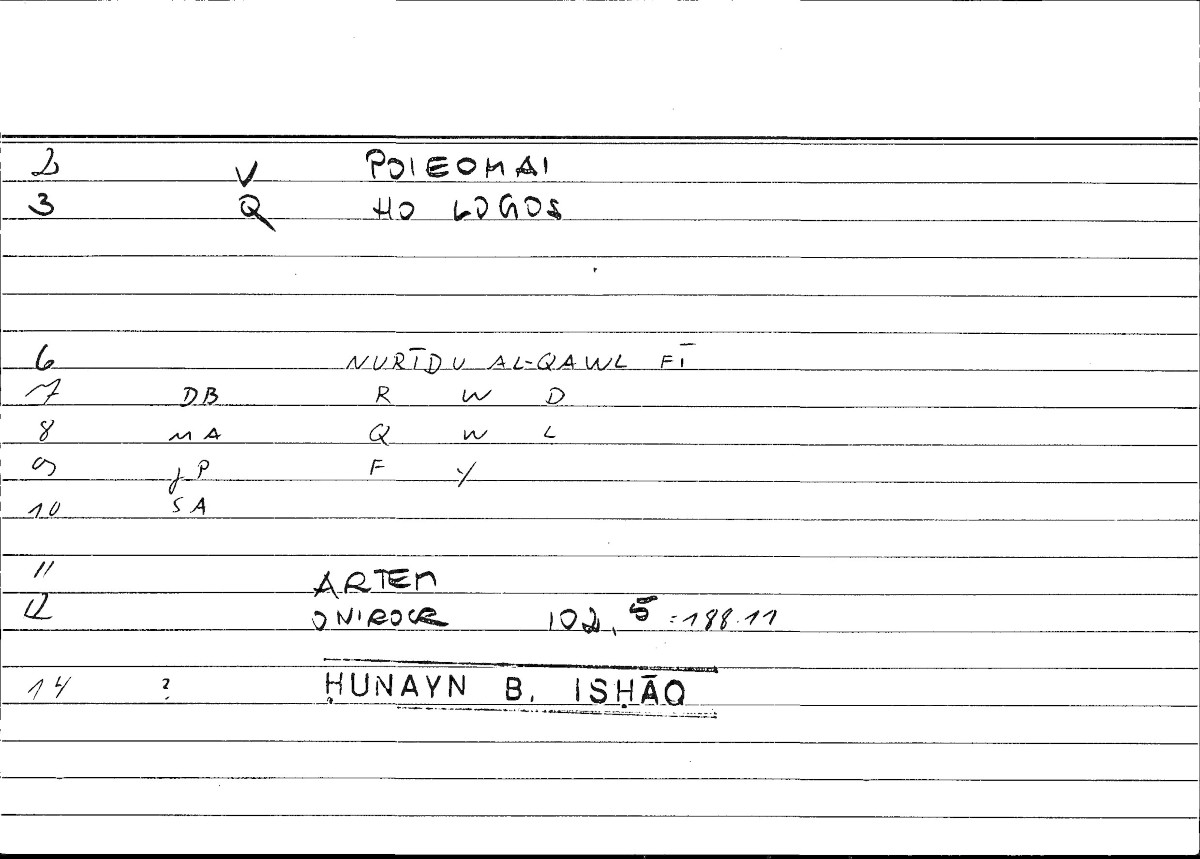 2 V POIEOMAI
3 Q HO LOGOS
6 NURĪDU AL-QAWL FĪ
7 DB R W D
8 MA Q W L
9 JP F Y
10 SA
11 ARTEM
12 ONIROCR 102, 5 : 188.11
14 ? ḤUNAYN B. ISḤĀQ